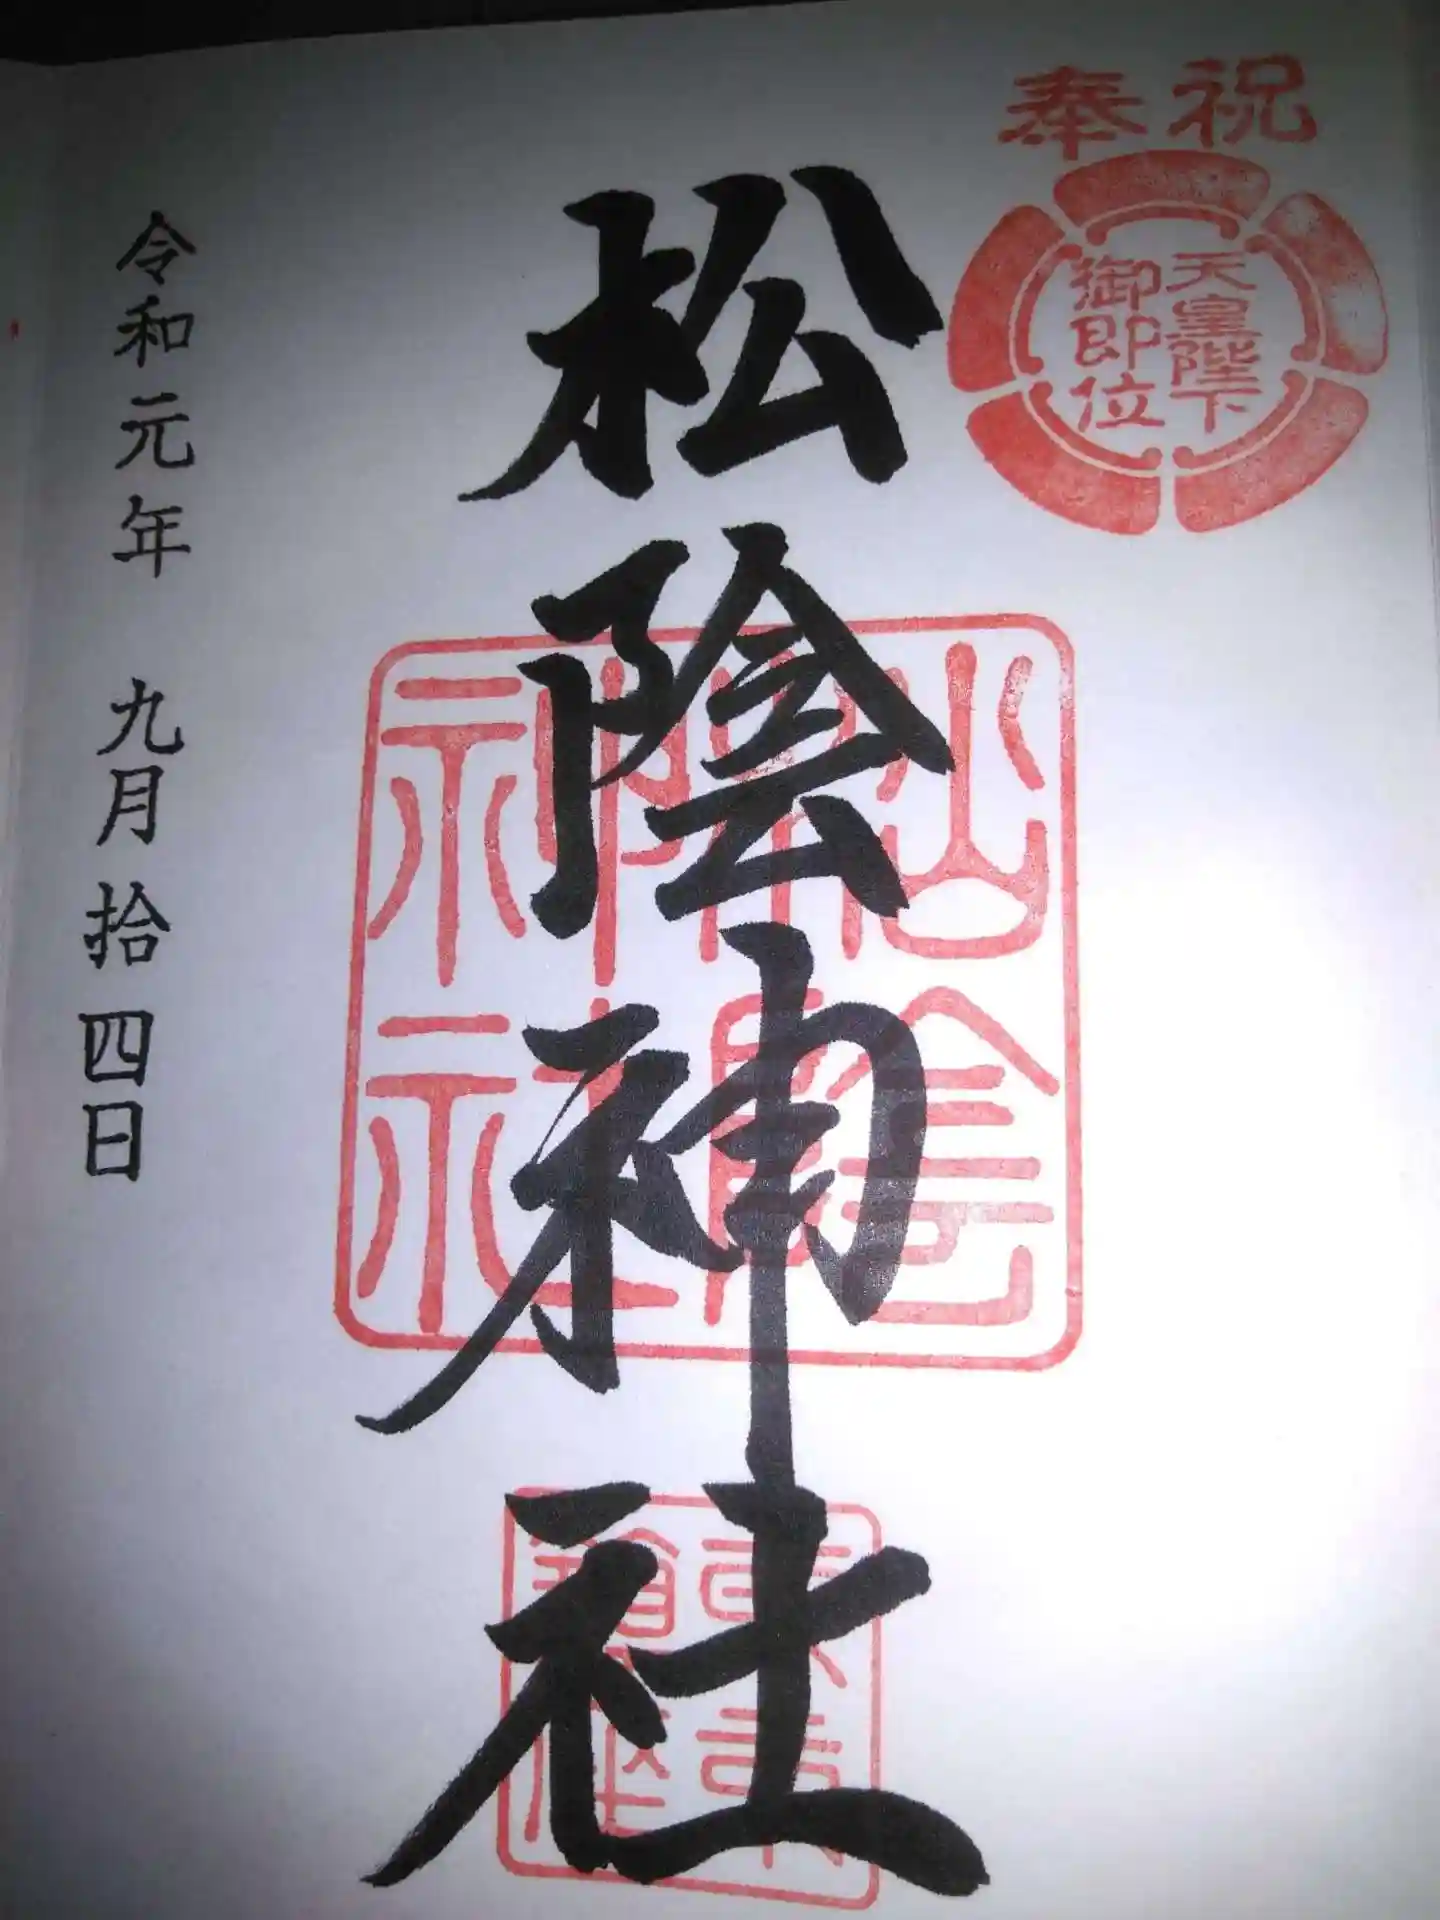 奉祝
天皇陛下
御即位
松陰神社
松陰
神社
令和元年 九月拾四日